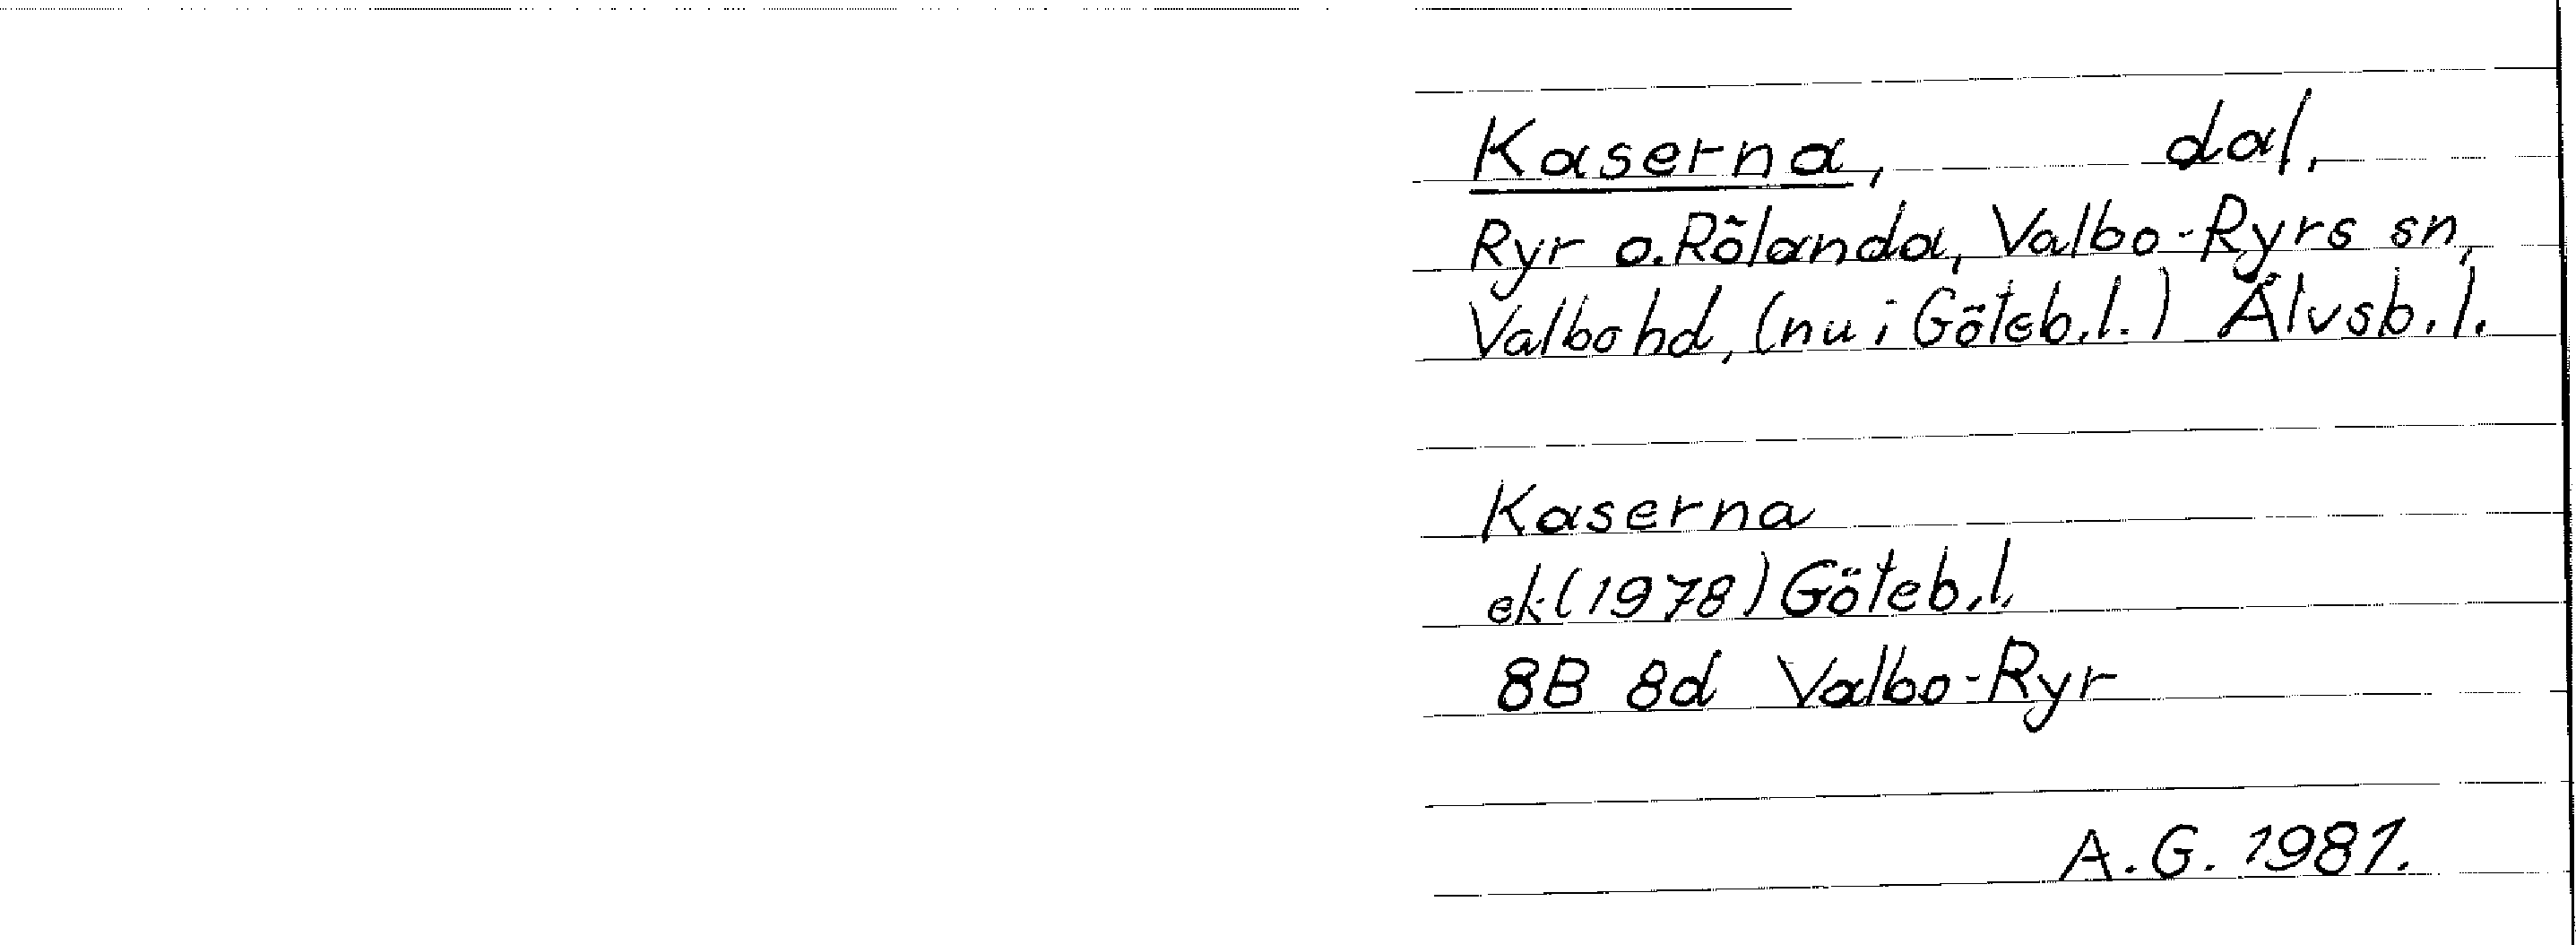 Kaserna, dal.
Ryr o. Rölanda, Valbo-Ryrs sn,
Valbo hd, (nu i Göteb.l.) Älvsb.l.
Kaserna
ek (1978) Göteb.l.
8B 8d Valbo-Ryr
A.G. 1981.